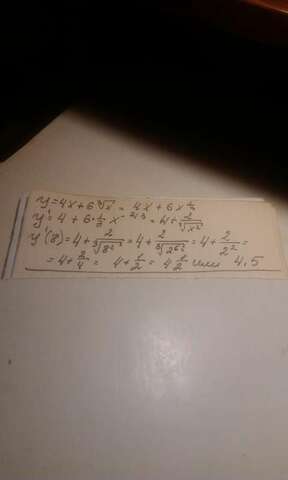 y = 4x + 6∛x = 4x + 6x^{1/3}
y' = 4 + 6·1/3 x^{-2/3} = 4 + 2/∛x²
y'(8) = 4 + 2/∛8² = 4 + 2/∛2⁶ = 4 + 2/2² =
= 4 + 2/4 = 4 + 1/2 = 4 1/2 или 4.5